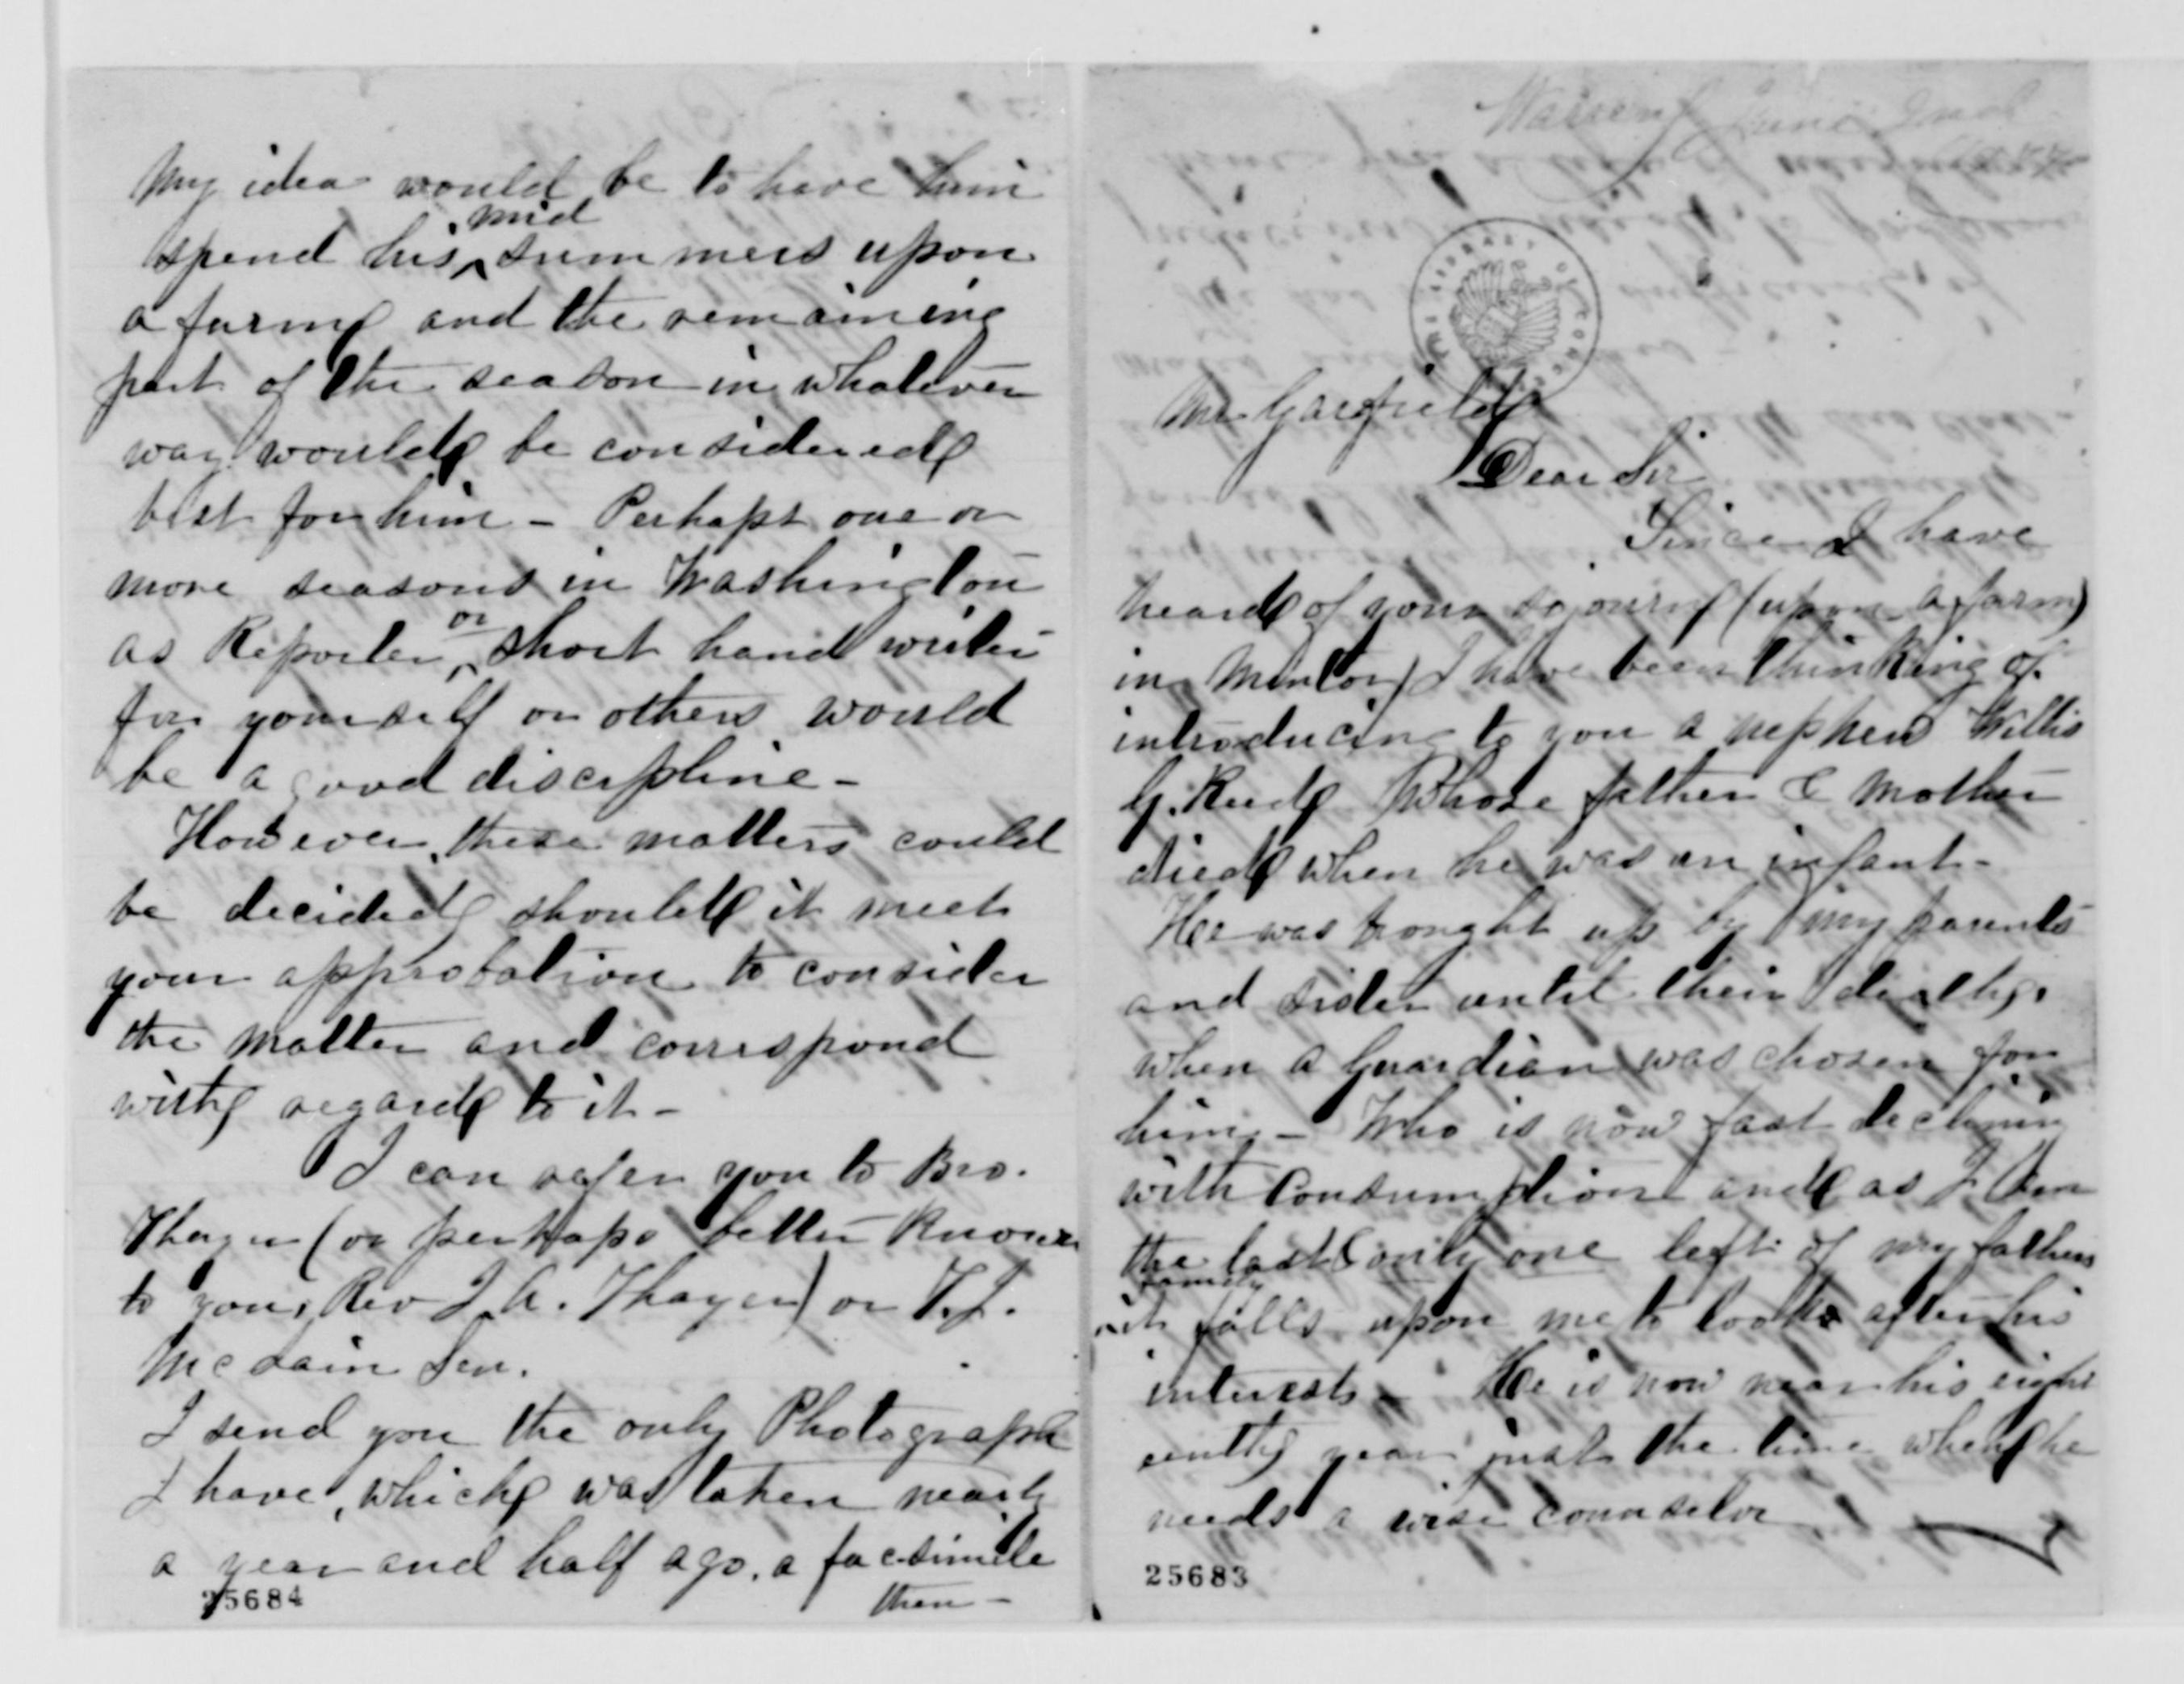 My idea would be to have him
spend his ^mid summers upon
a farm and the remaining
part of the season in whatever
way would be considered
best for him - Perhaps one or
more seasons in Washington
as Reporter ^or short hand writer
for yourself or others would
be a good discipline -
However, these matters could
be decided should it meet
your approbation to consider
the matter and correspond
with regard to it -
I can refer you to Bro.
Thayer (or perhaps better known
to you, Rev J. A. Thayer) or T. J.
McLain Sen.
I send you the only Photograph
I have, which was taken nearly
a year and half ago. a fac-simile
then -
25684
Warren June 2nd
THE LIBRARY OF CONGRESS
Mr Garfield
Dear Sir
Since I have
heard of your sojourn (upon a farm)
in Mentor, I have been thinking of
introducing to you a nephew Willis
G. Reed Whose father & mother
died when he was an infant -
He was brought up by my parents
and sister until their death,
when a Guardian was chosen for
him - Who is now fast declining
with Consumption and as I am
the last & only one left of my fathers
family
it falls upon me to look after his
interests - He is now near his eight
eenth year just the time when he
needs a wise counselor
25683